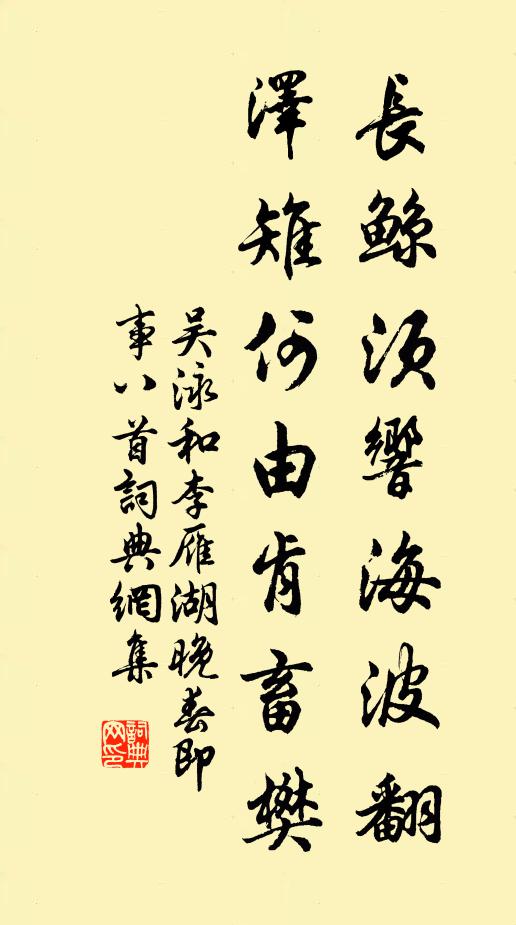 長鯨須響海波翻
澤雉何由肯畜樊
吴泳和李雁湖晚春即
事八首詞典網集
詞典
网印